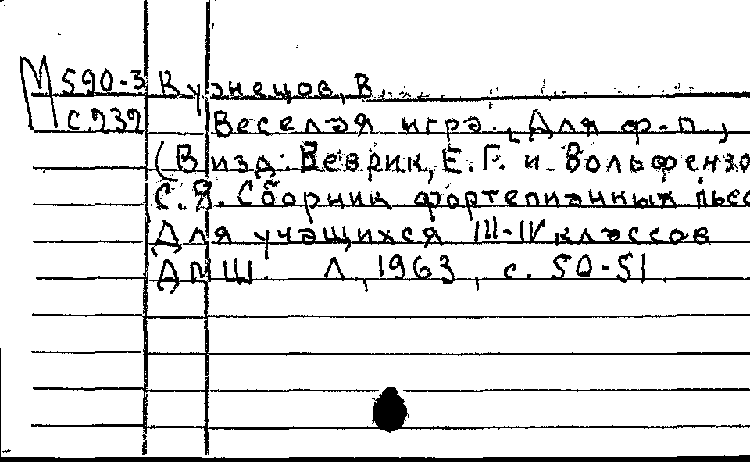 М 590-3 Кузнецов, В.
С 939 Веселая игра. [Для ф.-п.,
(В изд: Веврик, Е. Г. и Вольфензо
С. Я. Сборник фортепианных пьес
Для учащихся III-IV классов
ДМШ. Л, 1963, с. 50-51